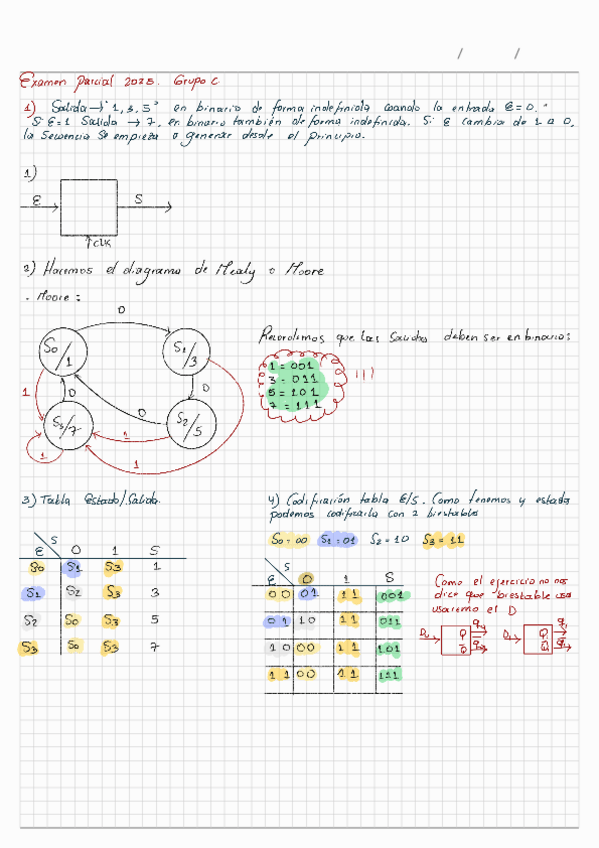 / /
Examen Parcial 2025. Grupo C
1) Salida → "1, 3, 5" en binario de forma indefinida cuando la entrada E=0.
Si E=1 Salida → 7, en binario también de forma indefinida. Si E cambia de 1 a 0,
la secuencia se empieza a generar desde el principio.
1)
E S
CLK
2) Hacemos el diagrama de Mealy o Moore
. Moore:
0
S0/1 S1/3
Recordamos que las salidas deben ser en binario:
1 = 001
3 = 011
5 = 101
7 = 111
!!!
1 0 0 0
S3/7 S2/5
1 1 1
3) Tabla Estado/Salida.
4) Codificación tabla E/S. Como tenemos 4 estados
podemos codificarla con 2 biestables
S0=00 S1=01 S2=10 S3=11
S
E 0 1 S
S0 S1 S3 1
S1 S2 S3 3
S2 S0 S3 5
S3 S0 S3 7
S
E 0 1 S
00 01 11 001
01 10 11 011
10 00 11 101
11 00 11 111
Como el ejercicio no nos
dice que biestable usa
usaremos el D
Q Q
Q̅ Q̅